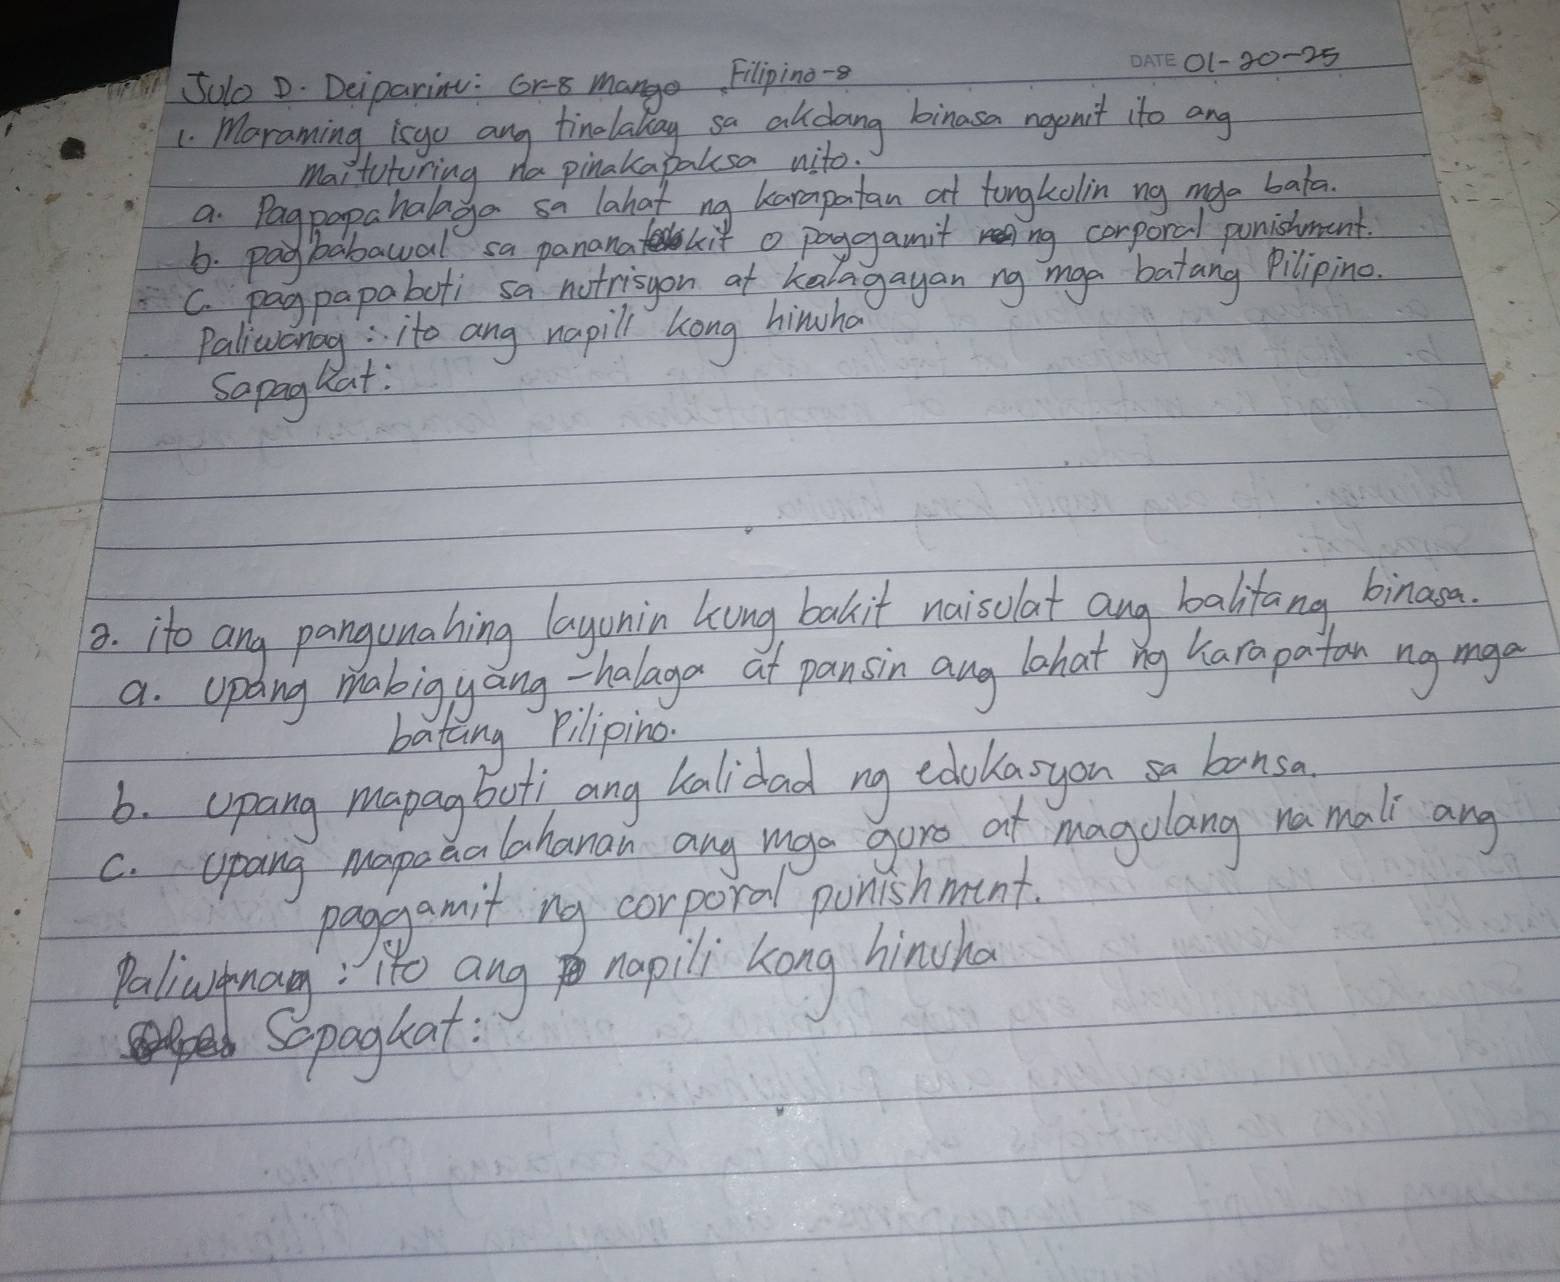 DATE 01-20-25
Julo D. Deiparine: Gr-8 Mango Filipino-8
1. Maraming isyu ang tinalakay sa akdang binasa ngunit ito ang
maituturing na pinakapaksa nito.
a. Pagpapahalaga sa lahat ng karapatan at tungkolin ng mga bata.
b. pagbabawal sa pananakit o paggamit ng corporal punishment.
c. pagpapabuti sa nutrisyon at kalagayan ng mga batang Pilipino.
Paliwanag: ito ang napili kong hinuha
Sapagkat:
2. ito ang pangunahing layunin kung bakit naisulat ang balitang binasa.
a. upang mabigyang-halaga at pansin ang lahat ng karapatan ng mga
batang Pilipino.
b. upang mapagbuti ang kalidad ng edukasyon sa bansa.
c. upang mapaaalahanan ang mga guro at magulang na mali ang
paggamit ng corporal punishment.
Paliwanag: ito ang napili kong hinuha
Sapagkat: